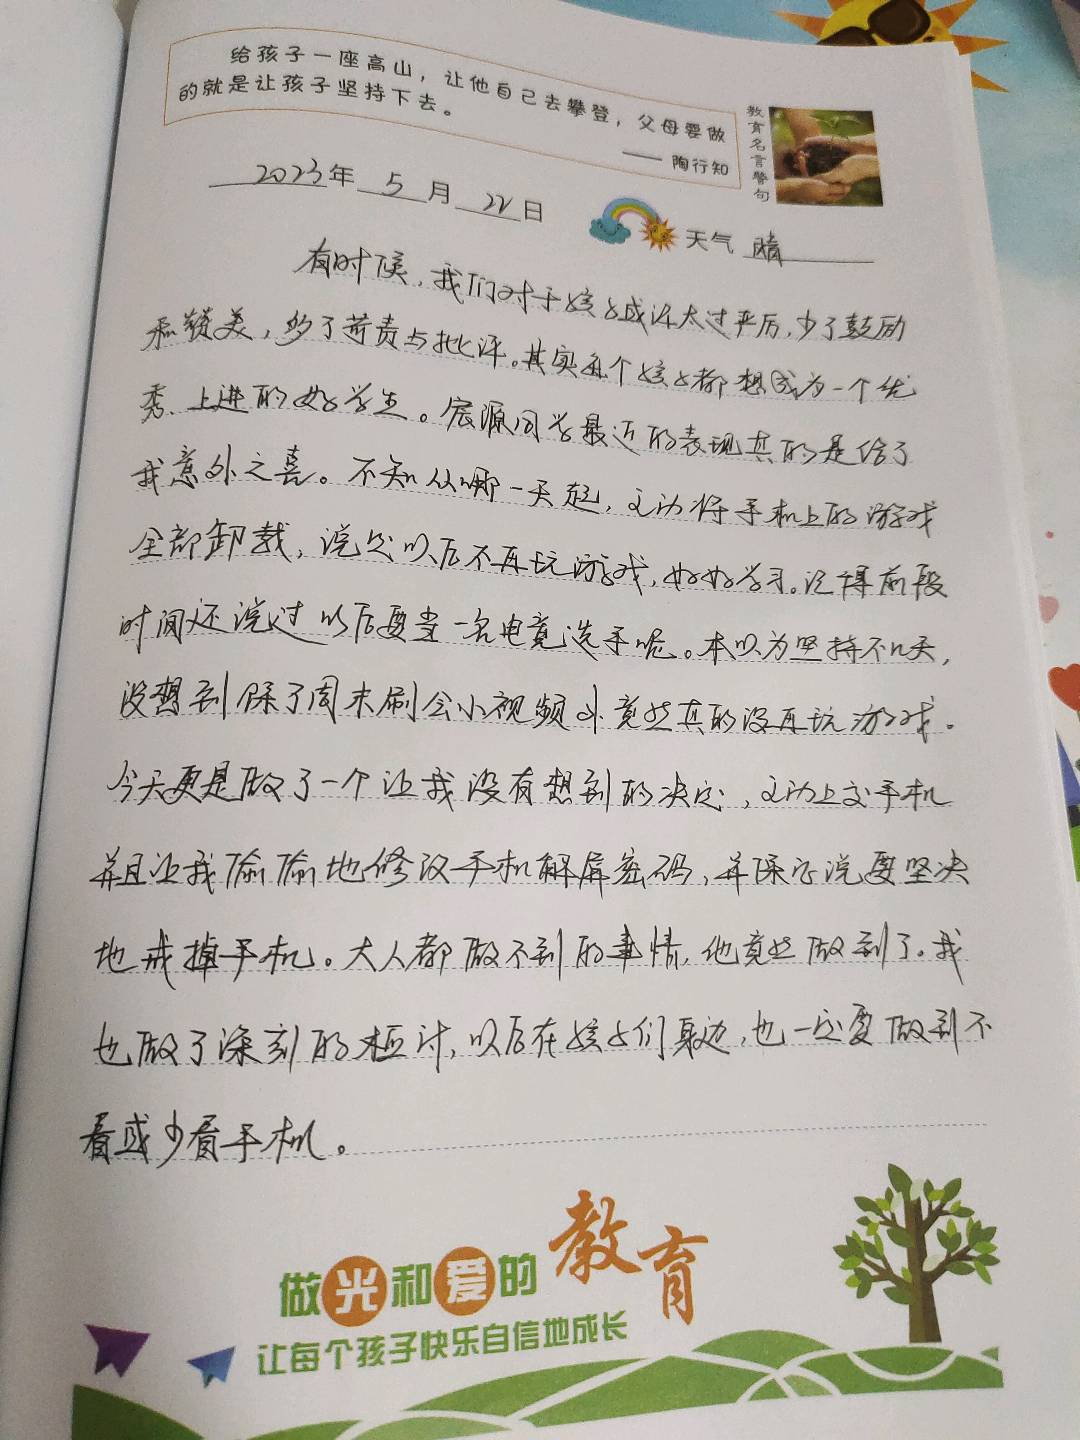 给孩子一座高山，让他自己去攀登，父母要做
的就是让孩子坚持下去。
—— 陶行知
教育名言警句
2023年 5 月 22 日
天气 晴
有时候，我们对于孩子或许太过严厉，少了鼓励
和赞美，多了苛责与批评。其实每个孩子都想成为一个优
秀、上进的好学生。宸源同学最近的表现真的是给了
我意外之喜。不知从哪一天起，主动将手机上的游戏
全部卸载，说是以后不再玩游戏，好好学习。记得前段
时间还说过以后要当一名电竞选手呢。本以为坚持不几天，
没想到除了周末刷会小视频外竟然真的没再玩游戏。
今天更是做了一个让我没有想到的决定，主动上交手机
并且让我偷偷地修改手机解屏密码，并保证说要坚决
地戒掉手机。大人都做不到的事情，他竟然做到了。我
也做了深刻的检讨，以后在孩子们身边，也一定要做到不
看或少看手机。
做光和爱的教育
让每个孩子快乐自信地成长